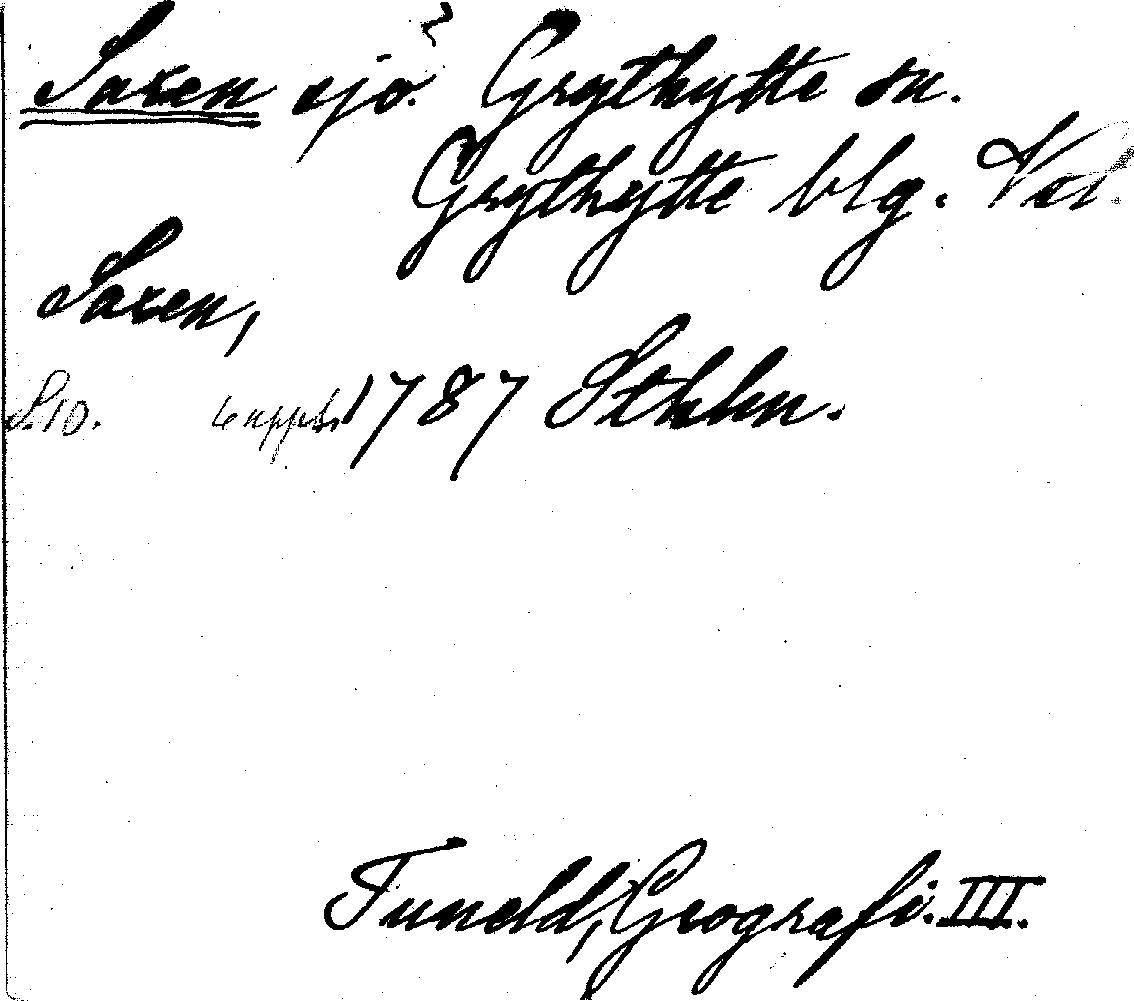 Saxen sjö. Grythytte sn.
Grythytte blg. Vstl.
Saxen,
S. 10. 6 uppl. 1787 Sthlm.
Tuneld, Geografi. III.